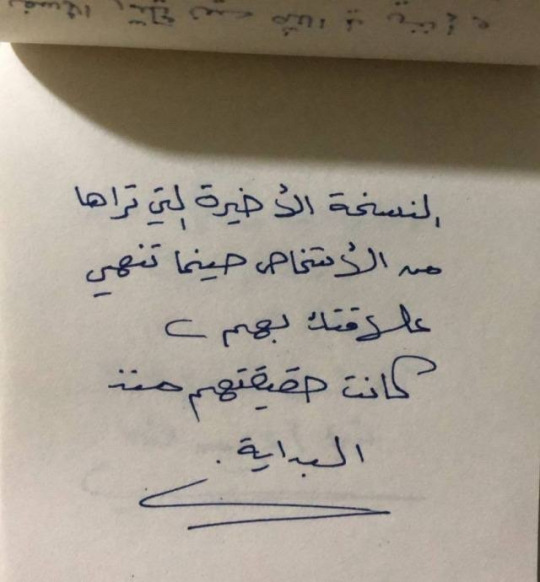 النسخة الأخيرة التي تراها
من الأشخاص حينما تنهي
علاقتك بهم ،
كانت حقيقتهم منذ
البداية .